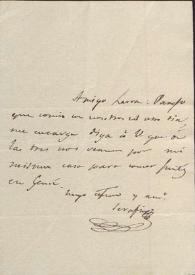 Amigo Larra: Pampo
que comía con nosotros el otro día
me encarga diga a U que a
las tres nos vemos por mi
misma casa para comer juntos
en Genié.
Suyo afmo y am.
Serafín